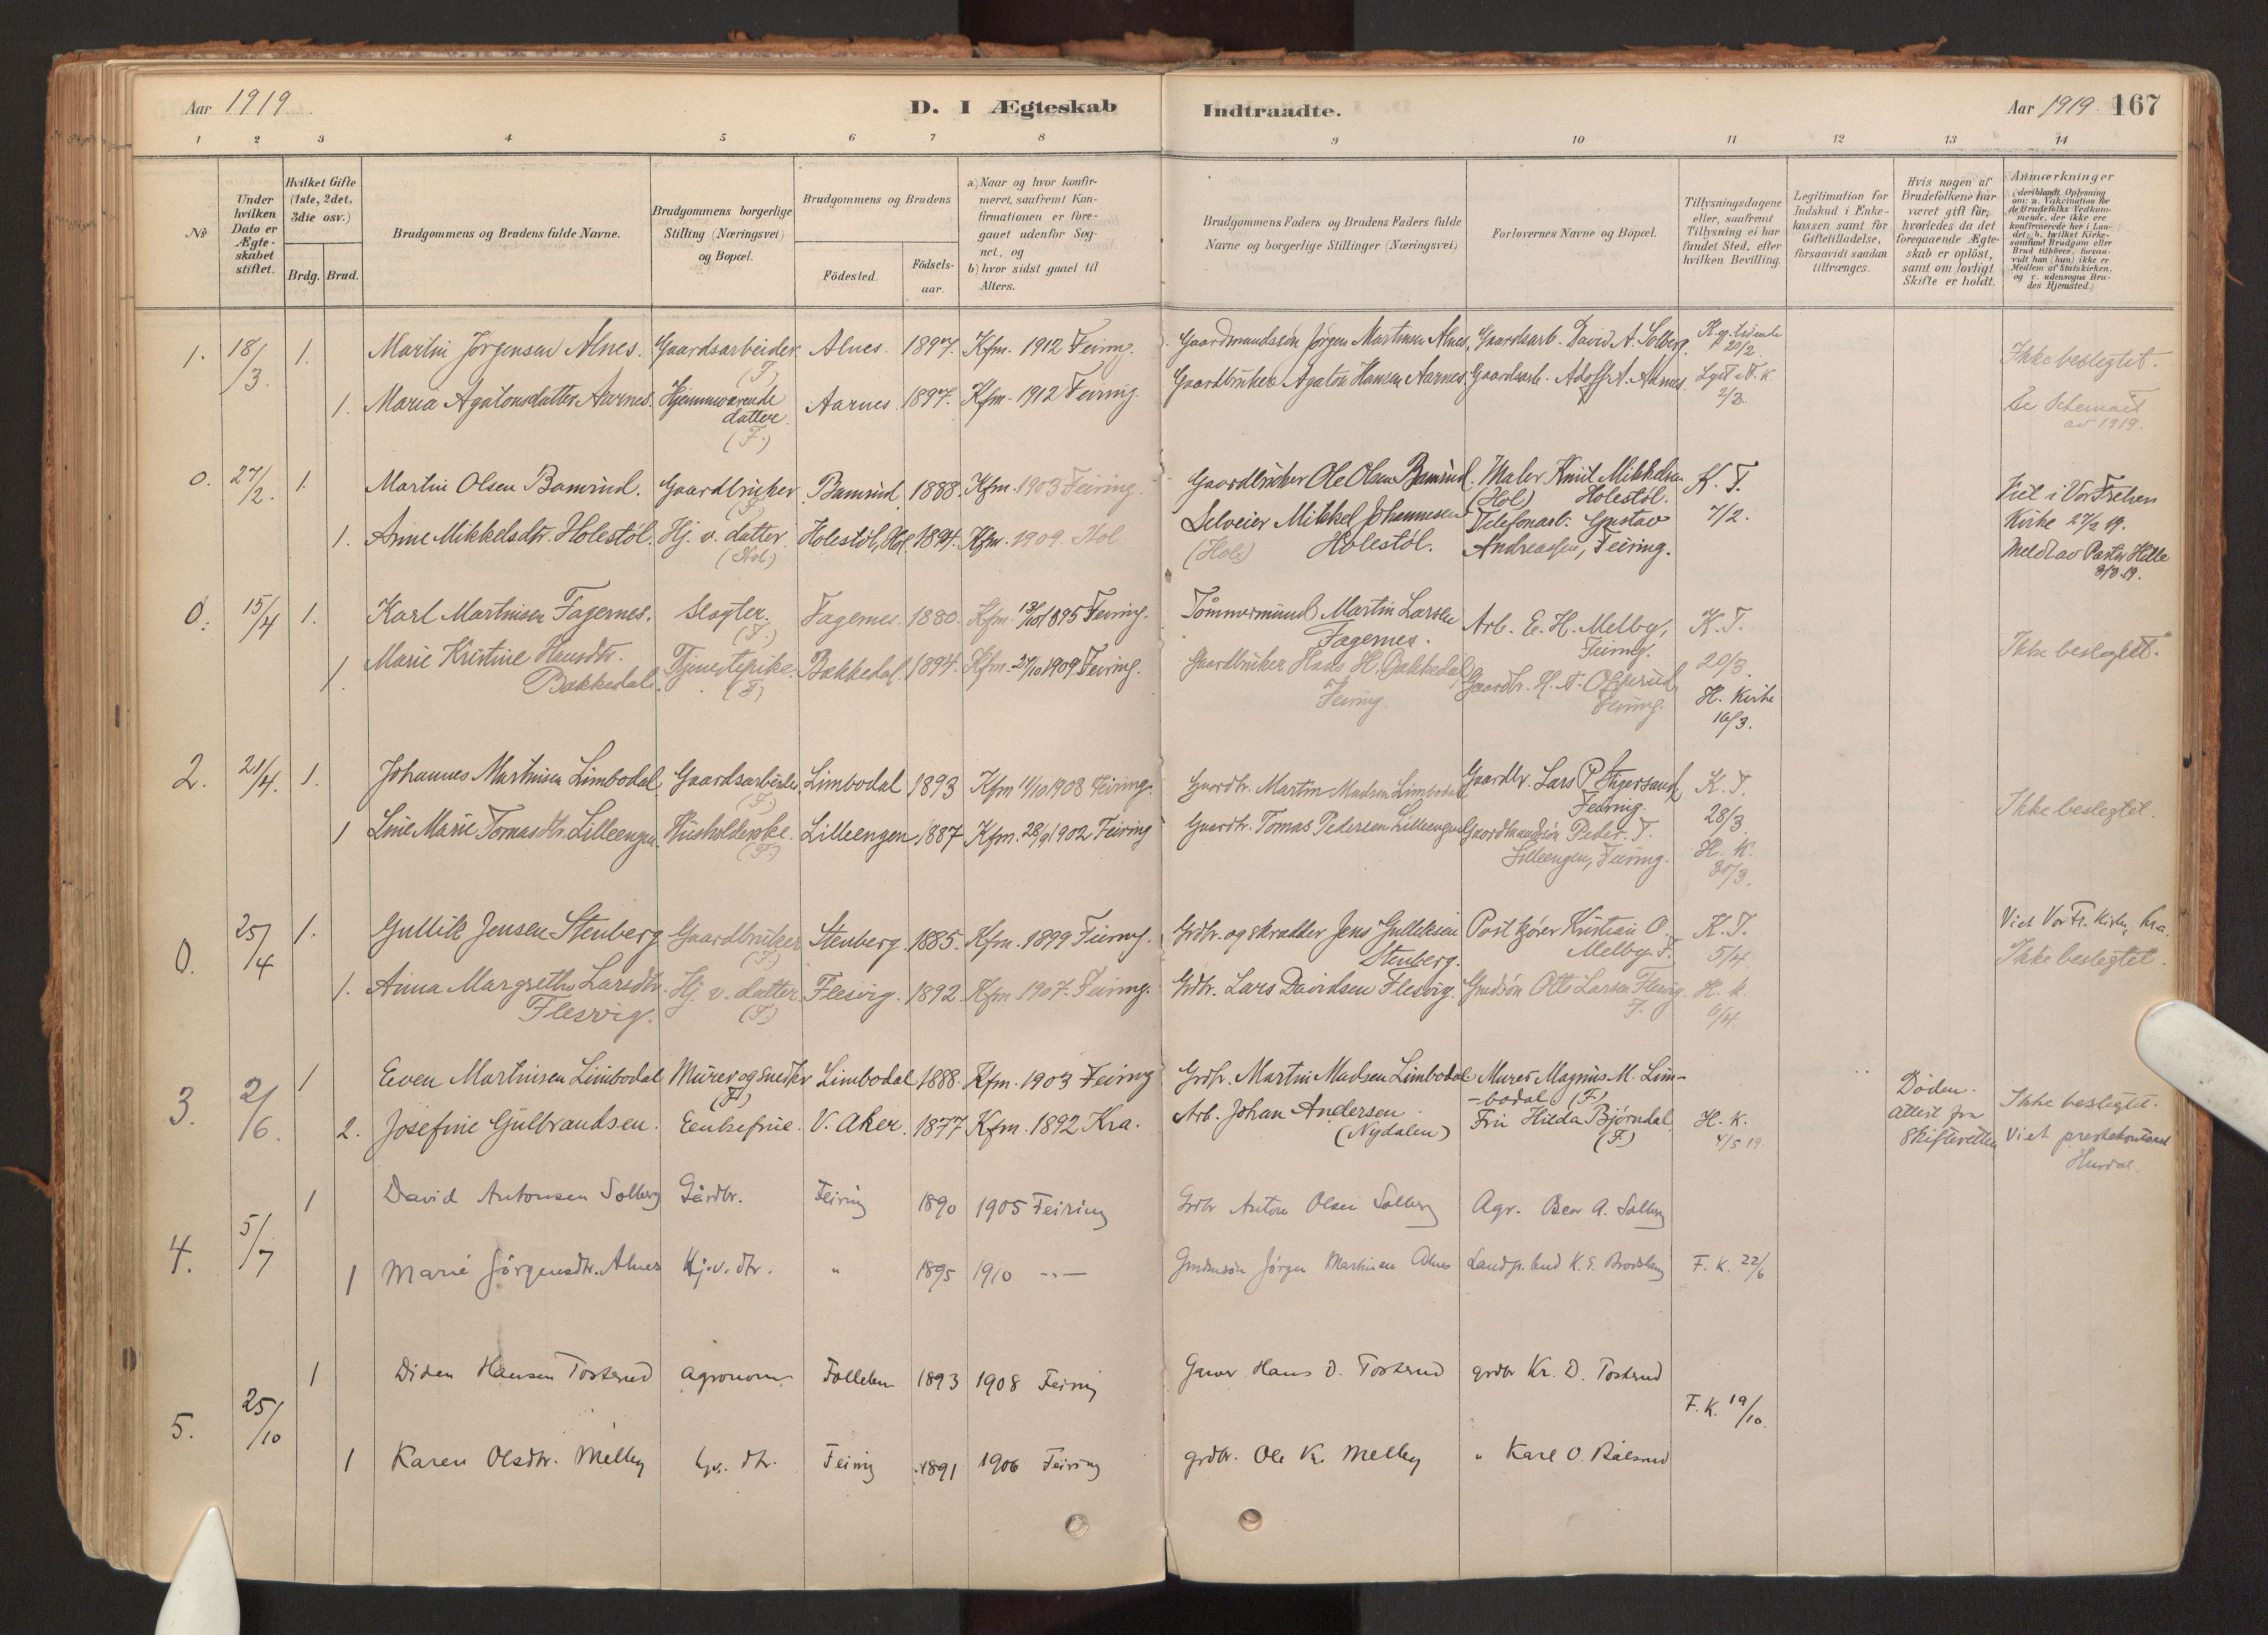 Aar 1919
D. I Ægteskab
Indtraadte.
Aar 1919 167
1 2 3 4 5 6 7 8 9 10 11 12 13 14
No
Under hvilken Dato er Ægteskabet stiftet.
Hvilket Gifte (1ste, 2det, 3die osv.)
Brdg. Brud.
Brudgommens og Brudens fulde Navne.
Brudgommens borgerlige Stilling (Næringsvei) og Bopæl.
Brudgommens og Brudens
Födested.
Födsels-aar.
a) Naar og hvor konfirmeret, saafremt Konfirmationen er foregaaet udenfor Sognet, og
b) hvor sidst gaaet til Alters.
Brudgommens Faders og Brudens Faders fulde Navne og borgerlige Stillinger (Næringsvei)
Forlovernes Navne og Bopæl.
Tillysningsdagene eller, saafremt Tillysning ei har fundet Sted, efter hvilken Bevilling.
Legitimation for Indskud i Enkekassen samt for Giftetilladelse, forsaavidt saadan tiltrænges.
Hvis nogen af Brudefolkene har været gift før, hvorledes da det foregaaende Ægteskab er oplöst, samt om lovligt Skifte er holdt.
Anmærkninger
(deriblandt Oplysning om: a. Vakcination for de Brudefolks Vedkommende, der ikke ere konfirmerede her i Landet; b. hvilket Kirkesamfund Brudgom eller Brud tilhörer, forsaavidt han (hun) ikke er Medlem af Statskirken, og c. udensogns Brudes Hjemsted.)
1. 18/3. 1. Martin Jörgensen Alnes. Gaardsarbeider (F) Alnes. 1897. Kfm. 1912 Feiring. Gaardmandssön Jörgen Martinsen Alnes, Gaardsarb. David A. Solberg. 20/2.
1. Maria Agatonsdatter Aarnes. Hjemmeværende datter. (F.) Aarnes 1897. Kfm. 1912 Feiring. Gaardbruker Agaton Hansen Aarnes. Gaardsarb. Adolf A. Aarnes. 2/3.
Ikke beslegtet.
av 1919.
0. 27/2. 1. Martin Olsen Bamrud. Gaardbruker (F) Bamrud 1888. Kfm. 1903 Feiring. Gaardbruker Ole Olsen Bamrud. Maler Knut Mikkelsen Holestöl. (Hol) K. T. 7/2.
1. Anne Mikkelsdtr. Holestöl. Hj. v. datter (Hol) Holestöl, Hol 1894. Kfm. 1909 Hol Selveier Mikkel Johannesen Holestöl. (Hole) Telefonarb. Gustav Andreassen, Feiring.
Viet i Vor Frelsers Kirke 27/2 19. Meldt av Pastor Hille 3/3 19.
0. 15/4 1. Karl Martinsen Fagernes. Slagter. (F.) Fagernes. 1880. Kfm. 13/10 1895 Feiring. Tömmermand Martin Larsen Fagernes. Arb. E. H. Melby, Feiring. K. T. 20/3.
1. Marie Kristine Hansdtr. Bakkedal. Tjenestepike. (F) Bakkedal. 1894. Kfm. 27/10 1909 Feiring. Gaardbruker Hans H. Bakkedal Feiring. Gaardbr. H. A. Feiring. H. Kirke 16/3.
Ikke beslegtet.
2. 21/4. 1. Johannes Martinsen Limbodal Gaardsarbeider (F) Limbodal 1893 Kfm 11/10 1908 Feiring. Gaardbr. Martin Madsen Limbodal Gaardbr. Lars P. Stigersand Feiring. K. T. 28/3.
1 Line Marie Tomasdtr. Lilleengen. Husholderske. (F) Lilleengen 1887 Kfm. 28/9 1902 Feiring Gaardbr. Tomas Pedersen Lilleengen Gaardmandssön Peder T. Lilleengen, Feiring. H. K. 30/3.
Ikke beslegtet.
0. 25/4 1. Gullik Jensen Stenberg Gaardbruker (F) Stenberg 1885. Kfm. 1899 Feiring. Grdbr. og skrædder Jens Gulliksen Stenberg. Postkjörer Kristian O. Melby. F. K. T. 5/4.
1. Anna Margrethe Larsdtr. Flesvig. Hj. v. datter (F.) Flesvig. 1892. Kfm 1907. Feiring. Grdbr. Lars Davidsen Flesvig. Grmdsön Otto Larsen Flesvig F. H. K. 6/4.
Viet Vor Fr. Kirke, Kra.
Ikke beslegtet.
3. 2/6. 1 Even Martinsen Limbodal Murer og snedker (F) Limbodal 1888. Kfm. 1903 Feiring Grdbr. Martin Madsen Limbodal Murer Magnus M. Lim-bodal (F)
2. Josefine Gulbrandsen. Eenkefrue. V. Aker. 1877 Kfm. 1892 Kra. Arb. Johan Andersen (Nydalen) Fru Hilda Björndal (F) H. K. 4/5 19
Döden. Attest fra Skifteretten
Ikke beslegtet. Viet prestekontoret Hurdal.
4. 5/7 1 David Antonsen Solberg Gårdbr. Feiring 1890 1905 Feiring Grdbr Anton Olsen Solberg Agr. A. Solberg
1 Marie Jörgensdtr. Alnes Hj. v. dtr. " 1895 1910 -"- Grmdssön Jörgen Martinsen Alnes Landp. bud K. E. F. K. 22/6
5. 25/10 1 Diden Hansen Tosterud agronom 1893 1908 Feiring Hans D. Tosterud grdbr Kr. D. Tosterud F. K. 19/10.
1 Karen Olsdtr. Melby hjv. dtr. Feiring 1891 1906 Feiring grdbr. Ole K. Melby " Karl O.